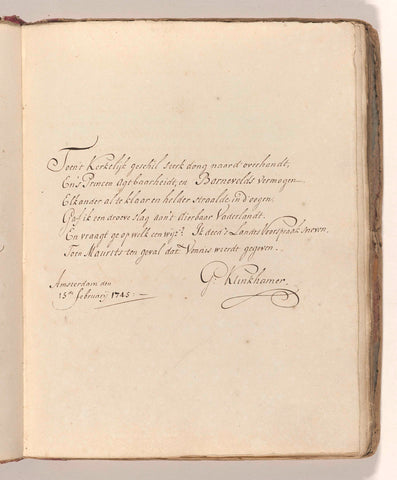 Toen 't Kerkelijk geschil sterk dong naar d'overhandt,
En 's Princen Agtbaarheidt, en Barnevelds vermogen
Elkander al te klaar en helder straalde in d'oogen;
Gaf ik een droeve slag aan 't dierbaar Vaderlandt.
En vraagt ge op welk een wijz? Ik deed 's Lands Voorspraak sneven,
Toen Maurits ten geval dat Vonnis wierdt gegeven.
G. Klinkhamer.
Amsterdam den
15den february 1745.